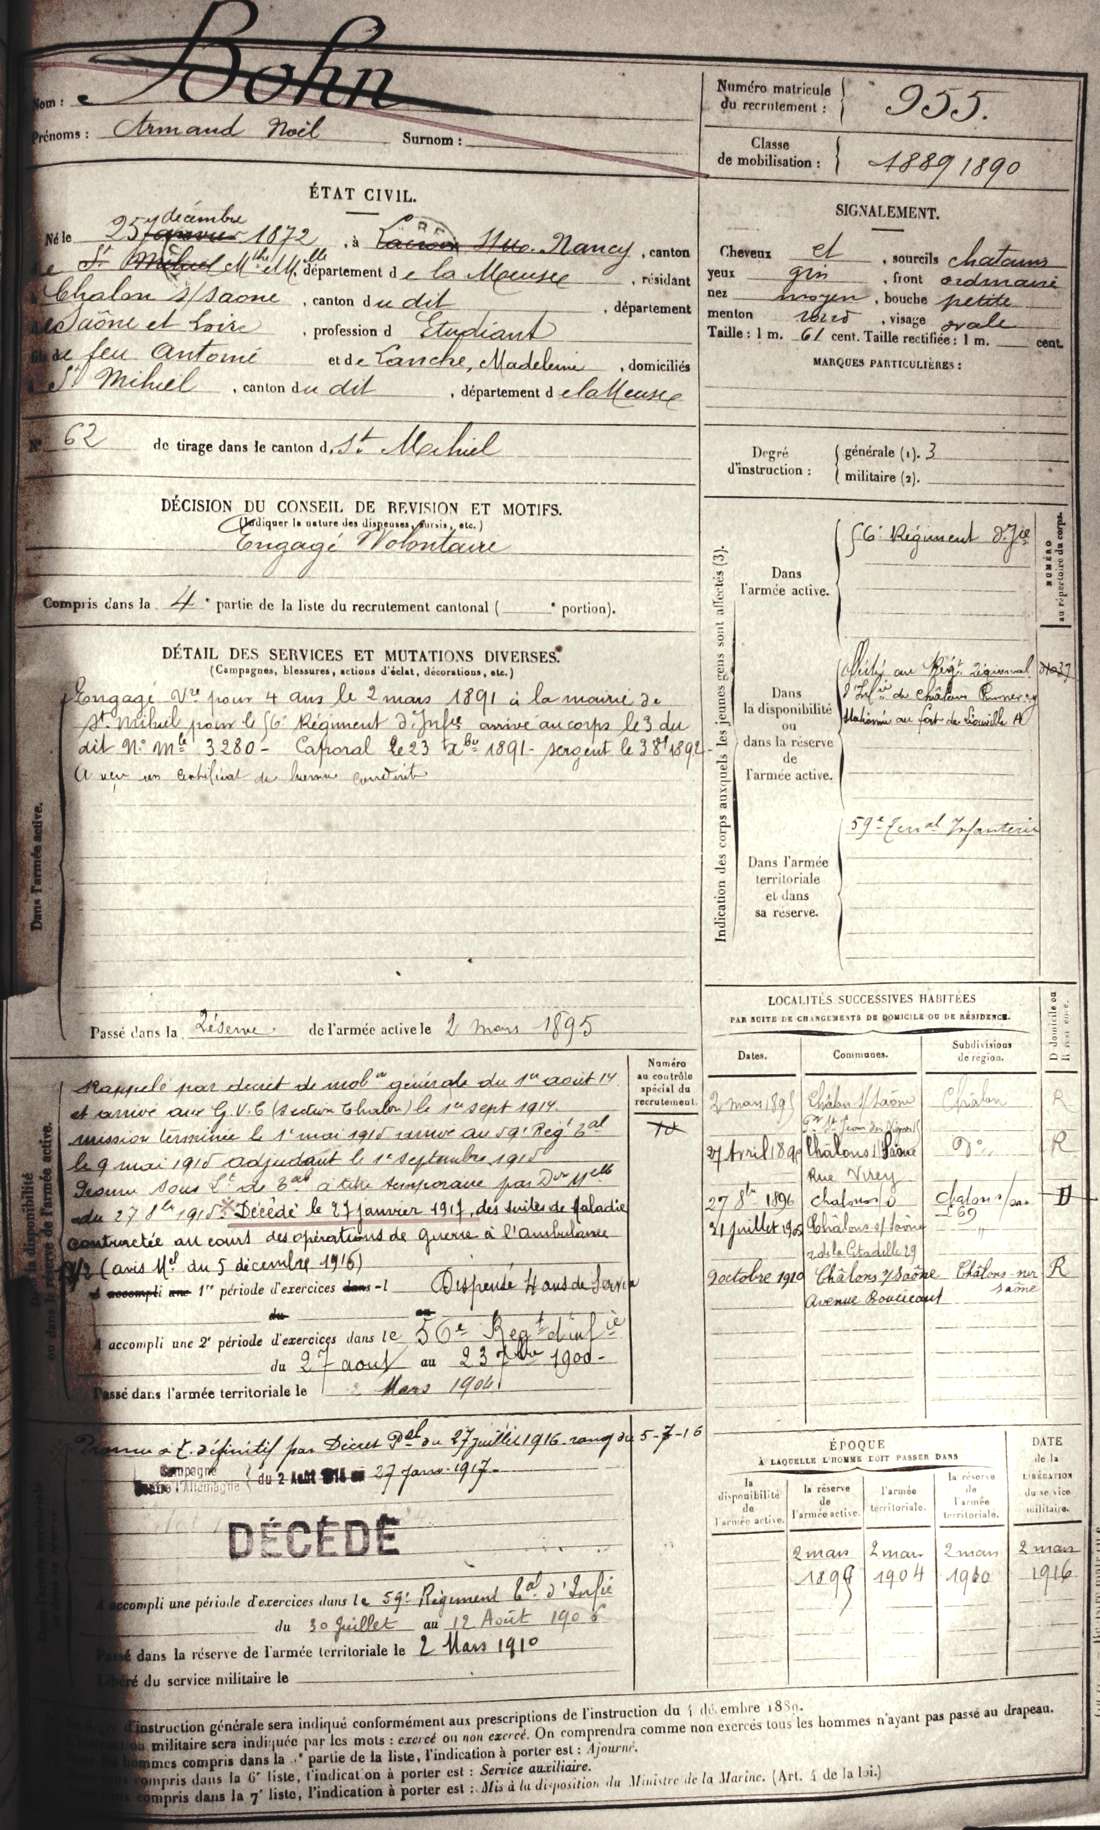 Nom : Bohn
Prénoms : Armand Noël Surnom :
Numéro matricule du recrutement : 955.
Classe de mobilisation : 1889 1890
ÉTAT CIVIL.
Né le 25 janvier décembre 1872, à Nancy, canton
de St Mihiel Mthe et Mlle département de la Meuse, résidant
à Chalon s/saone, canton du dit, département
de Saône et Loire, profession d Etudiant
fils de feu Antoine et de Lanche, Madeleine, domiciliés
à St Mihiel, canton du dit, département de la Meuse
No 62 de tirage dans le canton d. St Mihiel
SIGNALEMENT.
Cheveux et, sourcils chatains
yeux gris, front ordinaire
nez moyen, bouche petite
menton rond, visage ovale
Taille : 1 m. 61 cent. Taille rectifiée : 1 m. cent.
MARQUES PARTICULIÈRES :
Degré d'instruction : générale (1). 3
militaire (2).
DÉCISION DU CONSEIL DE REVISION ET MOTIFS.
(Indiquer la nature des dispenses, sursis, etc.)
Engagé Volontaire
Compris dans la 4e partie de la liste du recrutement cantonal ( e portion).
DÉTAIL DES SERVICES ET MUTATIONS DIVERSES.
(Campagnes, blessures, actions d'éclat, décorations, etc.)
Dans l'armée active.
Engagé Vre pour 4 ans le 2 mars 1891 à la mairie de
St. Mihiel pour le 56e Régiment d'Infie arrivé au corps le 3 du
dit No Mle 3280 - Caporal le 23 xbre 1891 - sergent le 3 8bre 1892
A reçu un certificat de bonne conduite
Passé dans la Réserve. de l'armée active le 2 mars 1895
Indication des corps auxquels les jeunes gens sont affectés (3).
NUMÉRO au répertoire du corps.
Dans l'armée active.
56e Régiment d'Ife
Dans la disponibilité ou dans la réserve de l'armée active.
Affecté au Régt Régional
d'Infie de
Stationné au fort de Liouville
Dans l'armée territoriale et dans sa réserve.
59e Terral Infanterie
Numéro au contrôle spécial du recrutement.
Rappelé par decret de mobon générale du 1er août 14
et arrivé aux G.V.C (Section Chalon) le 1er sept 1914
mission terminée le 1er mai 1915 arrivé au 59e Regt Tal
le 9 mai 1915 adjudant le 1er septembre 1915
Promu sous Lt de Tal à titre temporaire par Don Mlle
du 27 8bre 1915. Décédé le 27 janvier 1917, des suites de maladie
contractée au cours des opérations de guerre à l'ambulance
1/2 (avis Mel du 5 décembre 1916)
A accompli une 1re période d'exercices dans l Dispensé 4 ans de Service
du au
A accompli une 2e période d'exercices dans le 56e Regt d'infie
du 27 août au 23 7bre 1900-
Passé dans l'armée territoriale le 2 Mars 1904
Promu à T. définitif par Décret Pel du 27 juillet 1916. rang du 5-7-16
Campagne contre l'Allemagne du 2 Août 1914 au 27 janv. 1917.
DÉCÉDÉ
A accompli une période d'exercices dans le 59e Régiment Tal d'Infie
du 30 Juillet au 12 Août 1906
Passé dans la réserve de l'armée territoriale le 2 Mars 1910
Libéré du service militaire le
LOCALITÉS SUCCESSIVES HABITÉES
PAR SUITE DE CHANGEMENTS DE DOMICILE OU DE RÉSIDENCE.
Dates. Communes. Subdivisions de région. D domicile ou R résidence.
2 mars 1895 Châlon s/Saone Chalon R
27 Avril 1896 Châlons s/Saône Do R
Rue Virey
27 8bre 1896 Chalons Chalon s/Sao D
21 juillet 1905 Châlons s/Saône "
r de la Citadelle 29
9 octobre 1910 Châlons s/Saône Châlons sur Saône R
Avenue Boucicaut
ÉPOQUE
À LAQUELLE L'HOMME DOIT PASSER DANS
DATE de la LIBÉRATION du service militaire.
la disponibilité de l'armée active. la réserve de l'armée active. l'armée territoriale. la réserve de l'armée territoriale.
2 mars 1895 2 mars 1904 2 mars 1910 2 mars 1916
d'instruction générale sera indiqué conformément aux prescriptions de l'instruction du 4 décembre 1889.
militaire sera indiquée par les mots : exercé ou non exercé. On comprendra comme non exercés tous les hommes n'ayant pas passé au drapeau.
hommes compris dans la 5e partie de la liste, l'indication à porter est : Ajourné.
compris dans la 6e liste, l'indication à porter est : Service auxiliaire.
compris dans la 7e liste, l'indication à porter est : Mis à la disposition du Ministre de la Marine. (Art. 4 de la loi.)